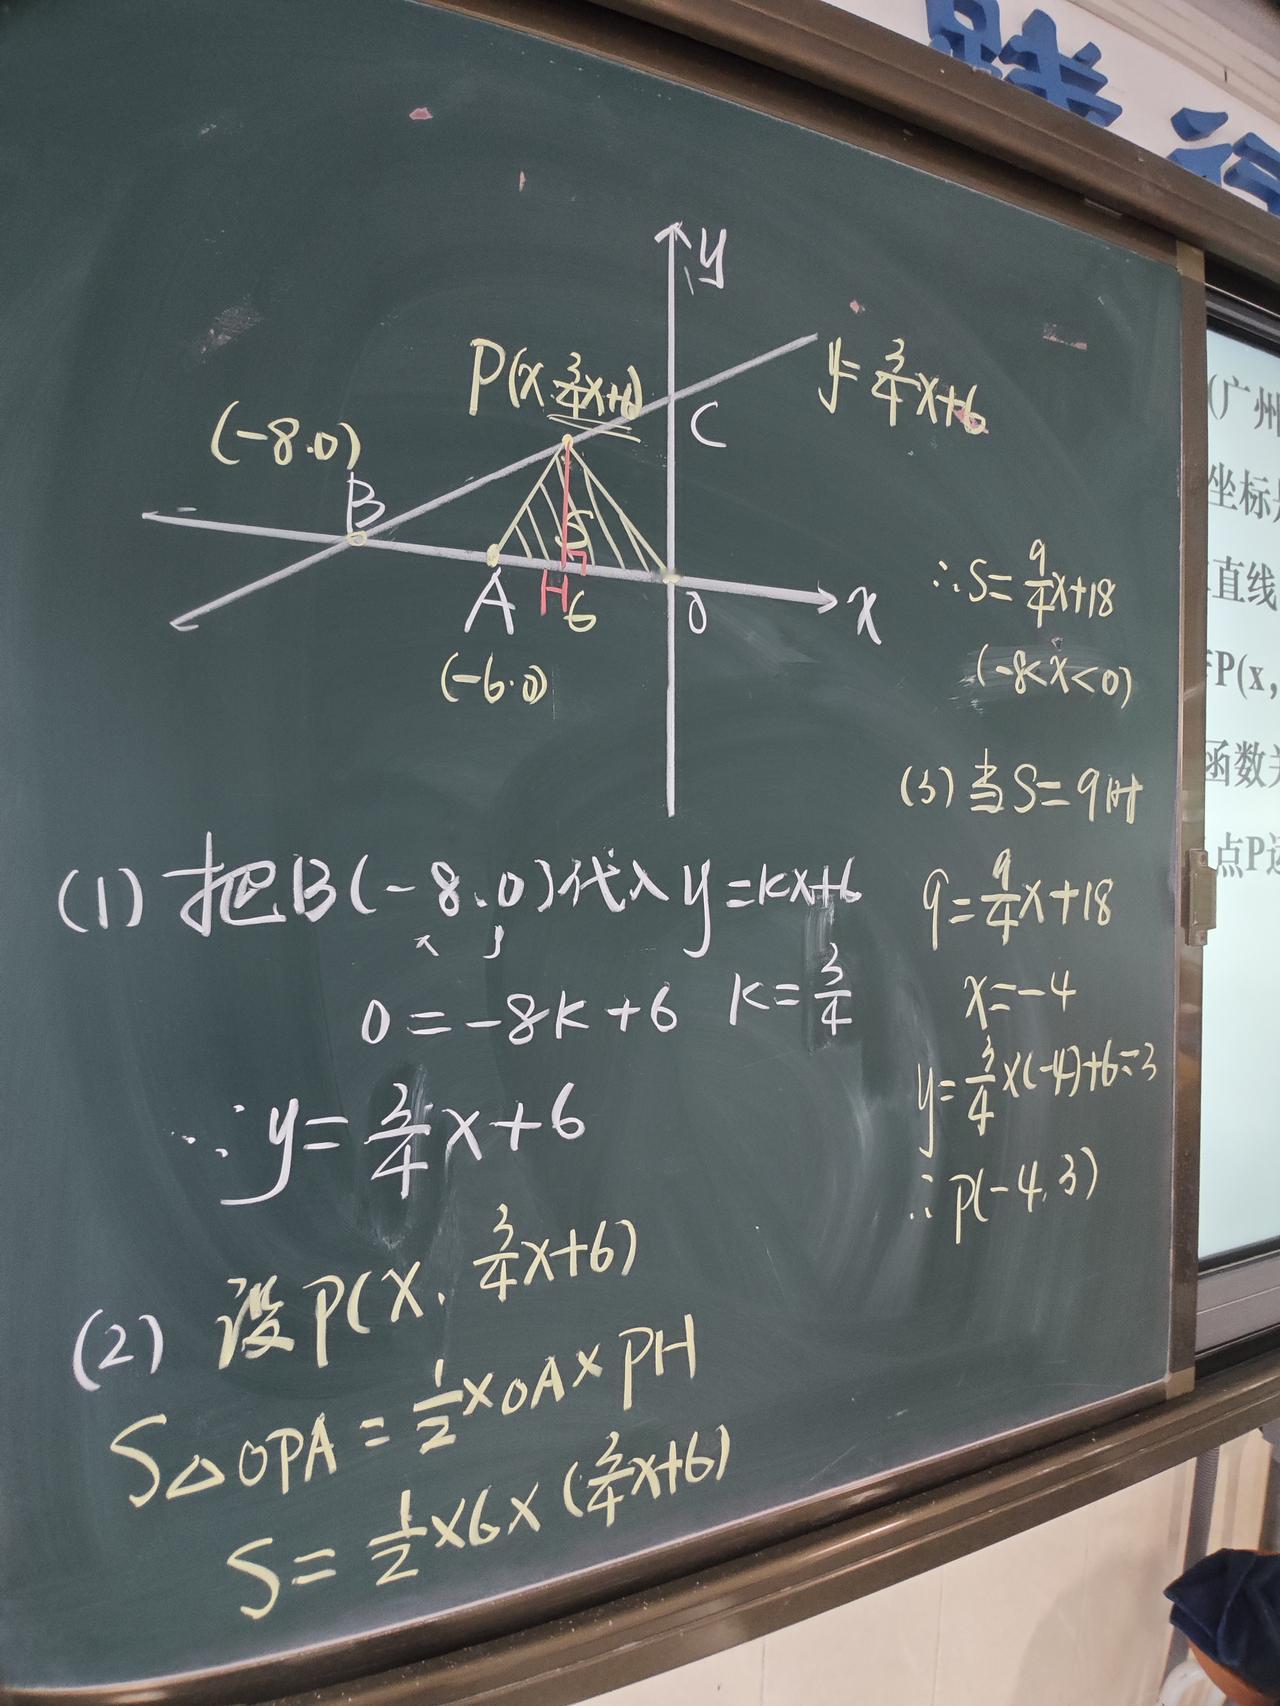 践行
y
P(x.3/4x+6)
y=3/4x+6
(-8.0)
B
C
S
A
H
6
O
x
(-6.0)
(1) 把B(-8.0)代入y=kx+6
x y
0=-8k+6 k=3/4
∴y=3/4x+6
(2) 设P(x.3/4x+6)
S△OPA=1/2×OA×PH
S=1/2×6×(3/4x+6)
∴S=9/4x+18
(-8<x<0)
(3)当S=9时
9=9/4x+18
x=-4
y=3/4×(-4)+6=3
∴P(-4.3)
(广州
坐标
直线
P(x,
函数
点P